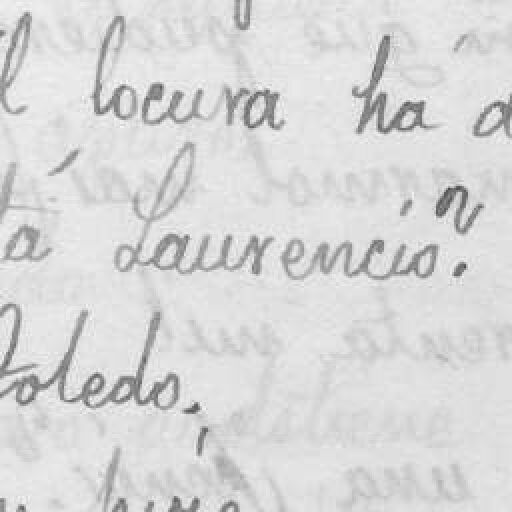 l locura ha d
tá Laurencio?
Toledo.